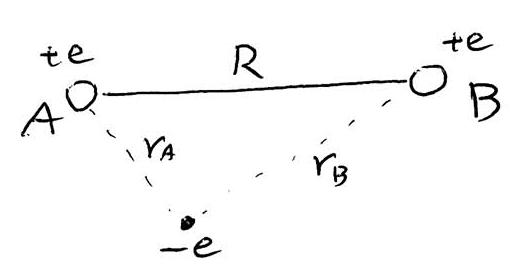 +e
+e
R
A
B
rA
rB
-e